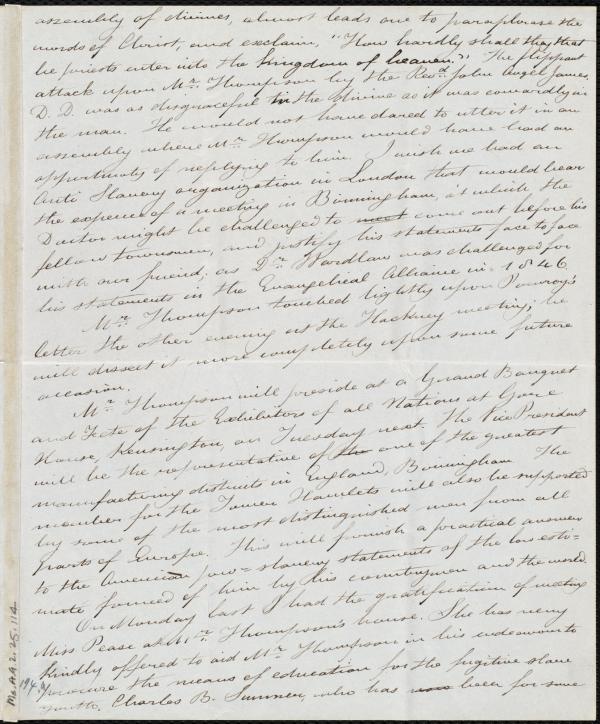 assembly of divines, almost leads one to paraphrase the
words of Christ, and exclaim, "How hardly shall they that
be priests enter into the kingdom of heaven." The flippant
attack upon Mr. Thompson by the Revd. John Angel James
D. D. was as disgraceful in the divine as it was cowardly in
the man. He would not have dared to utter it in an
assembly where Mr. Thompson would have had an
opportunity of replying to him. I wish we had an
Anti Slavery organization in London that would bear
the expence of a meeting in Birmingham, at which the
Doctor might be challenged to meet come out before his
fellow townsmen, and justify his statements face to face
with our friend; as Dr. Wardlaw was challenged for
his statements in the Evangelical Alliance in 1846.
Mr. Thompson touched lightly upon Pomroy's
letter the other evening at the Hackney meeting; he
will dissect it more completely upon some future
occasion.
Mr. Thompson will preside at a Grand Banquet
and Fete of the Exhibitors of all Nations at Gore
House, Kensington, on Tuesday next. The Vice President
will be the representative of the one of the greatest
manufacturing districts in England, Birmingham. The
member for the Tower Hamlets will also be supported
by some of the most distinguished men from all
parts of Europe. This will furnish a practical answer
to the American pro=slavery statements of the low esti=
mate formed of him by his countrymen and the world.
On Monday last I had the gratification of meeting
Miss Pease at Mr. Thompson's house. She has very
kindly offered to aid Mr. Thompson in his endeavour to
procure the means of education for the fugitive slave
youth, Charles B. Sumner, who has been for some
Ms. A.9.2.25.114